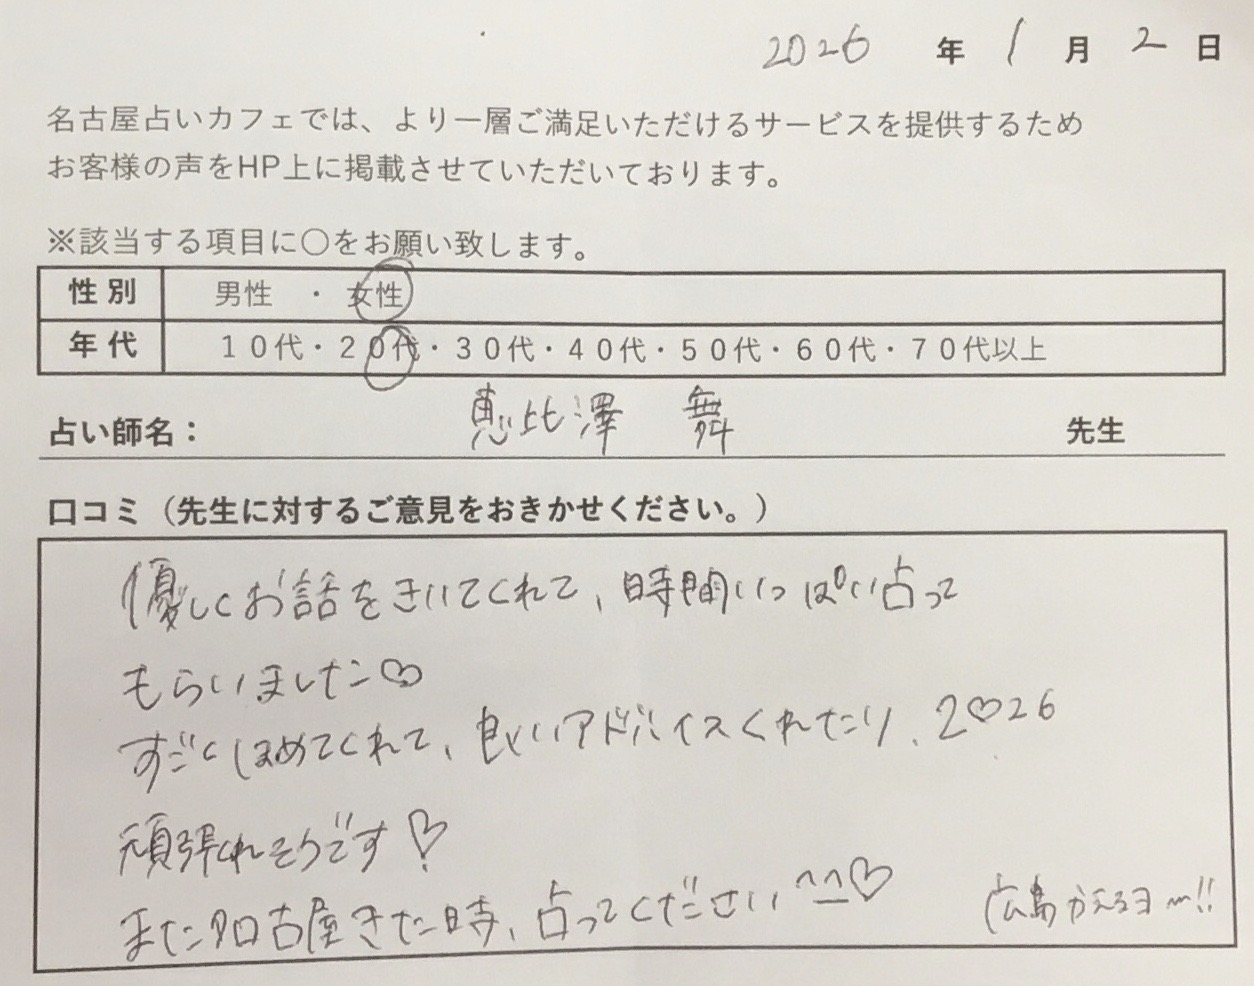 2026 年 1 月 2 日
名古屋占いカフェでは、より一層ご満足いただけるサービスを提供するため
お客様の声をHP上に掲載させていただいております。
※該当する項目に〇をお願い致します。
性別 男性 ・ 女性
年代 10代・20代・30代・40代・50代・60代・70代以上
占い師名： 恵比澤 舞 先生
口コミ（先生に対するご意見をおきかせください。）
優しくお話をきいてくれて、時間いっぱい占って
もらいました♡
すごくほめてくれて、良いアドバイスくれたり、2♡26
頑張れそうです♡
また名古屋きた時、占ってください^_^♡ 広島かえるヨ〜!!